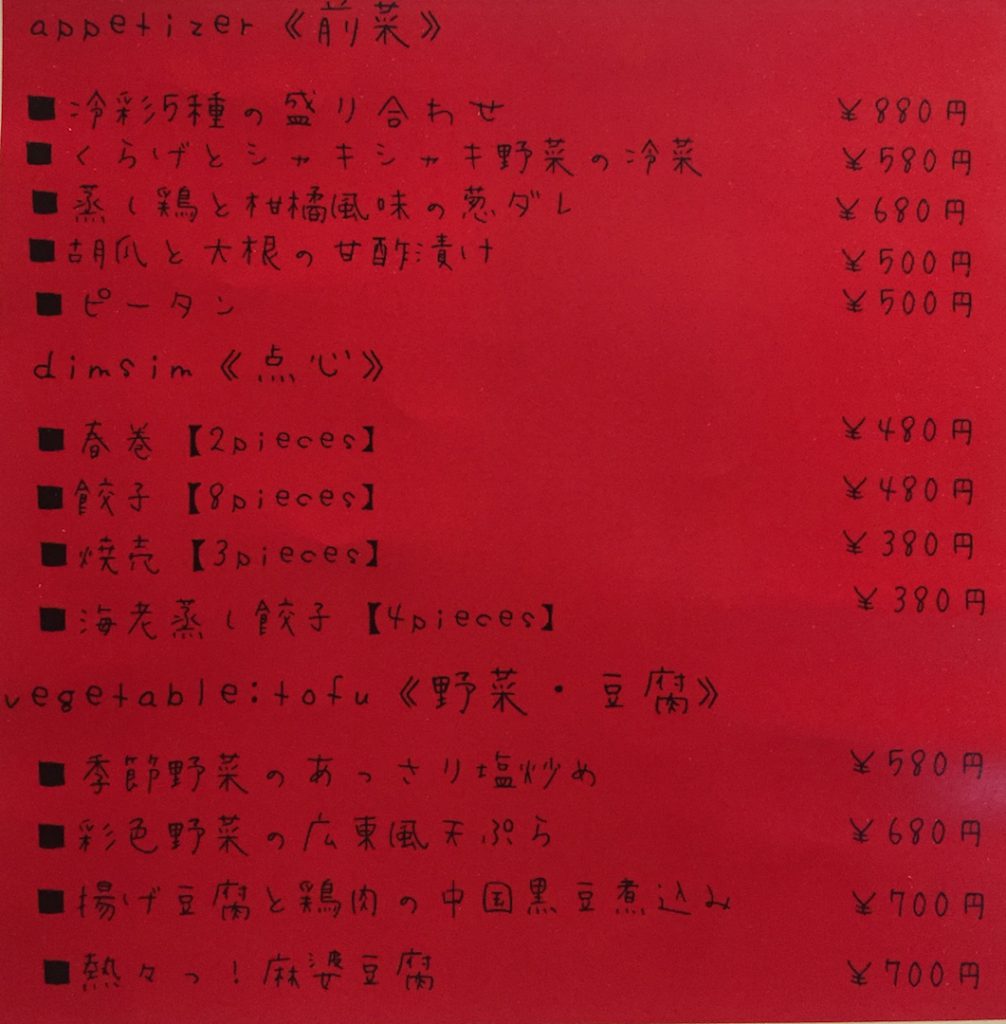 appetizer《前菜》
■冷彩5種の盛り合わせ ¥880円
■くらげとシャキシャキ野菜の冷菜 ¥580円
■蒸し鶏と柑橘風味の葱ダレ ¥680円
■胡瓜と大根の甘酢漬け ¥500円
■ピータン ¥500円
dimsim《点心》
■春巻【2pieces】 ¥480円
■餃子【8pieces】 ¥480円
■焼売【3pieces】 ¥380円
■海老蒸し餃子【4pieces】 ¥380円
vegetable:tofu《野菜・豆腐》
■季節野菜のあっさり塩炒め ¥580円
■彩色野菜の広東風天ぷら ¥680円
■揚げ豆腐と鶏肉の中国黒豆煮込み ¥700円
■熱々っ!麻婆豆腐 ¥700円